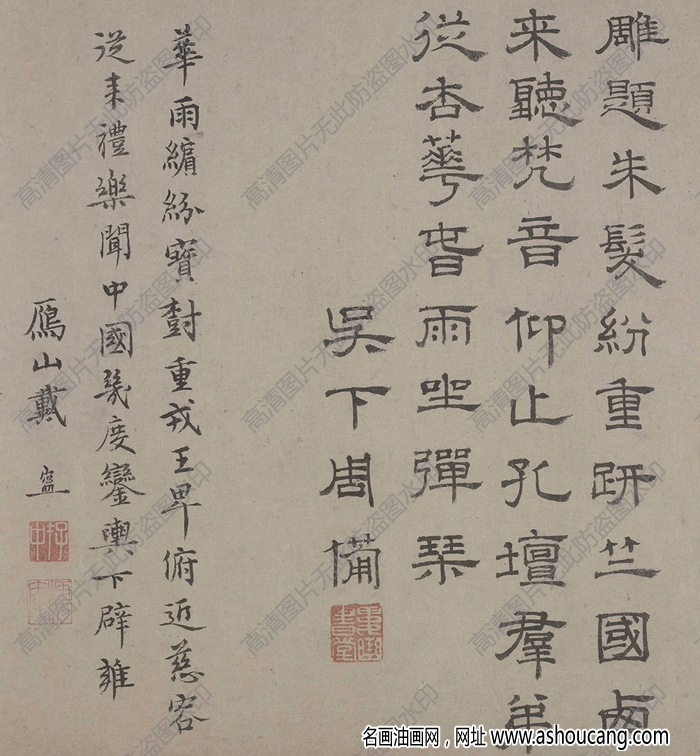 雕題朱髮紛重趼竺國卥
来聽梵音仰止孔壇羣弟
從杏華旹雨坐彈琹
吳下周備
華雨繽紛寶樹重戎王卑俯近慈容
從来禮樂聞中國幾度鑾輿下辟雍
鴈山戴
高清图片无此防盗图水印
名画油画网，网址 www.ashoucang.com